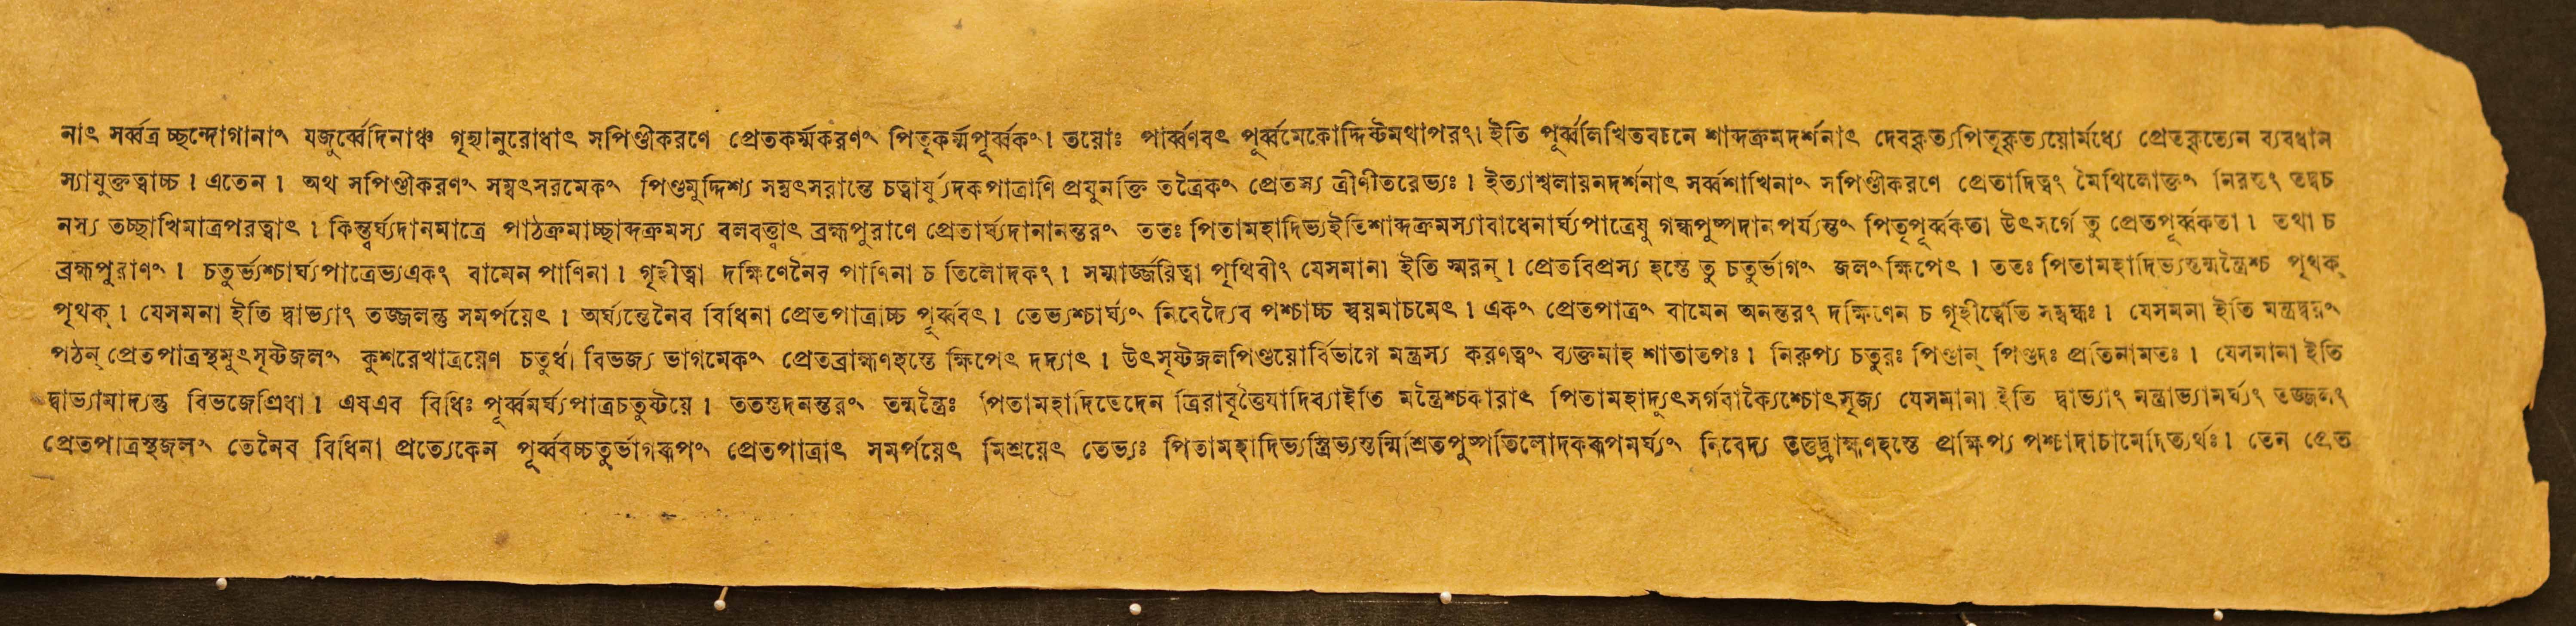 নাৎ সর্ব্বত্র চ্ছন্দোগানাং যজুর্ব্বেদিনাঞ্চ গৃহ্যানুরোধাৎ সপিণ্ডীকরণে প্রেতকর্ম্মকরণং পিতৃকর্ম্মপূর্ব্বকং। তয়োঃ পার্ব্বণবৎ পূর্ব্বমেকোদ্দিষ্টমথাপরং। ইতি পূর্ব্বলিখিতবচনে শাব্দক্রমদর্শনাৎ দেবকৃত্যপিতৃকৃত্যয়োর্মধ্যে প্রেতকৃত্যেন ব্যবধান
স্যাযুক্তত্বাচ্চ। এতেন। অথ সপিণ্ডীকরণং সম্বৎসরমেকং পিণ্ডমুদ্দিশ্য সম্বৎসরান্তে চত্বার্যুদকপাত্রাণি প্রযুনক্তি তত্রৈকং প্রেতস্য ত্রীণীতরেভ্যঃ। ইত্যাশ্বলায়নদর্শনাৎ সর্ব্বশাখিনাং সপিণ্ডীকরণে প্রেতাদিত্বং মৈথিলোক্তং নিরস্তং তদ্বচ
নস্য তচ্ছাখিমাত্রপরত্বাৎ। কিন্ত্বর্ঘ্যদানমাত্রে পাঠক্রমাচ্ছাব্দক্রমস্য বলবত্ত্বাৎ ব্রহ্মপুরাণে প্রেতার্ঘ্যদানানন্তরং ততঃ পিতামহাদিভ্যইতিশাব্দক্রমস্যাবাধেনার্ঘ্যপাত্রেষু গন্ধপুষ্পদানপর্য্যন্তং পিতৃপূর্ব্বকতা উৎসর্গে তু প্রেতপূর্ব্বকতা। তথা চ
ব্রহ্মপুরাণং। চতুর্ভ্যশ্চার্ঘ্যপাত্রেভ্যএকং বামেন পাণিনা। গৃহীত্বা দক্ষিণেনৈব পাণিনা চ তিলোদকং। সম্মার্জ্জয়িত্বা পৃথিবীং যেসমানা ইতি স্মরন্। প্রেতবিপ্রস্য হস্তে তু চতুর্ভাগং জলং ক্ষিপেৎ। ততঃ পিতামহাদিভ্যস্তন্মন্ত্রৈশ্চ পৃথক্
পৃথক্। যেসমনা ইতি দ্বাভ্যাং তজ্জলন্তু সমর্পয়েৎ। অর্ঘ্যন্তেনৈব বিধিনা প্রেতপাত্রাচ্চ পূর্ব্ববৎ। তেভ্যশ্চার্ঘ্যং নিবেদ্যৈব পশ্চাচ্চ স্বয়মাচমেৎ। একং প্রেতপাত্রং বামেন অনন্তরং দক্ষিণেন চ গৃহীত্বেতি সম্বন্ধঃ। যেসমনা ইতি মন্ত্রদ্বয়ং
পঠন্ প্রেতপাত্রস্থমুৎসৃষ্টজলং কুশরেখাত্রয়েণ চতুর্ধা বিভজ্য ভাগমেকং প্রেতব্রাহ্মণহস্তে ক্ষিপেৎ দদ্যাৎ। উৎসৃষ্টজলপিণ্ডয়োর্বিভাগে মন্ত্রস্য করণত্বং ব্যক্তমাহ শাতাতপঃ। নিরুপ্য চতুরঃ পিণ্ডান্ পিণ্ডদঃ প্রতিনামতঃ। যেসমানা ইতি
দ্বাভ্যামাদ্যন্তু বিভজেত্ত্রিধা। এষএব বিধিঃ পূর্ব্বমর্ঘ্যপাত্রচতুষ্টয়ে। ততস্তদনন্তরং তন্মন্ত্রৈঃ পিতামহাদিভেদেন ত্রিরাবৃত্তৈর্যাদিব্যাইতি মন্ত্রৈশ্চকারাৎ পিতামহাদ্যুৎসর্গবাক্যৈশ্চোৎসৃজ্য যেসমানা ইতি দ্বাভ্যাং মন্ত্রাভ্যামর্ঘ্যং তজ্জলং
প্রেতপাত্রস্থজলং তেনৈব বিধিনা প্রত্যেকেন পূর্ব্ববচ্চতুর্ভাগরূপং প্রেতপাত্রাৎ সমর্পয়েৎ মিশ্রয়েৎ তেভ্যঃ পিতামহাদিভ্যস্ত্রিভ্যস্তন্মিশ্রিতপুষ্পতিলোদকরূপমর্ঘ্যং নিবেদ্য তত্তদ্ব্রাহ্মণহস্তে প্রক্ষিপ্য পশ্চাদাচামেদিত্যর্থঃ। তেন প্রেত